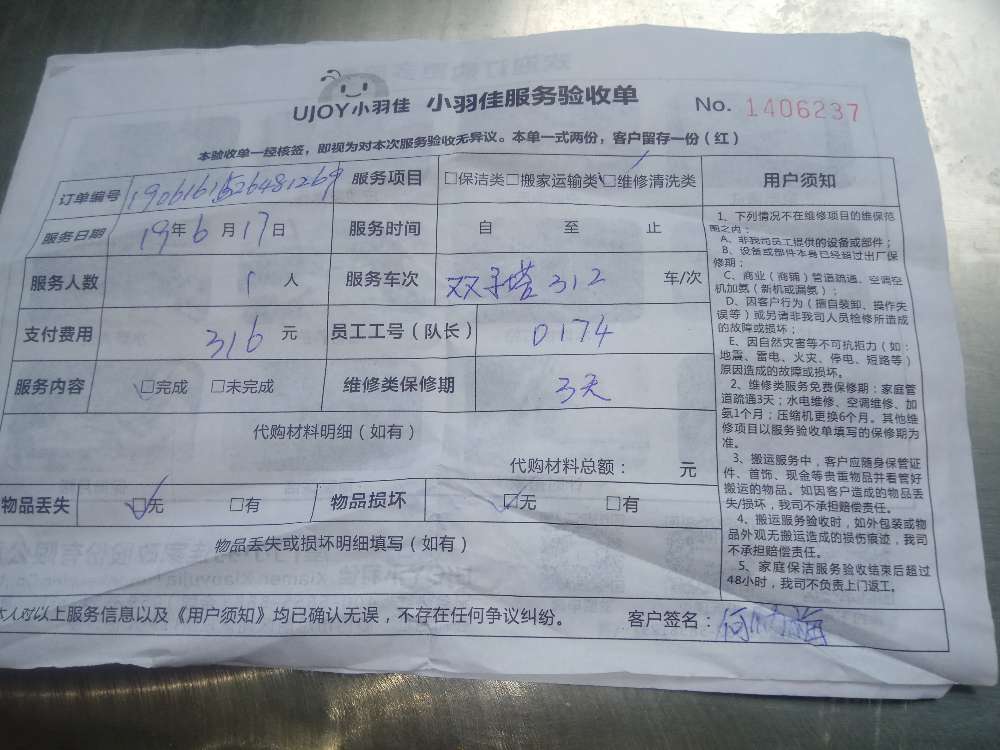 UJOY小羽佳 小羽佳服务验收单 No. 1406237
本验收单一经核签，即视为对本次服务验收无异议。本单一式两份，客户留存一份（红）
订单编号 190616152648126 服务项目 □保洁类□搬家运输类□维修清洗类
服务日期 19年6月17日 服务时间 自 至 止
服务人数 1 人 服务车次 双子塔312 车/次
支付费用 316 元 员工工号（队长） 0174
服务内容 □完成 □未完成 维修类保修期 3天
代购材料明细（如有）
代购材料总额： 元
物品丢失 □无 □有 物品损坏 □无 □有
物品丢失或损坏明细填写（如有）
本人对以上服务信息以及《用户须知》均已确认无误，不存在任何争议纠纷。 客户签名：
用户须知
1、下列情况不在维修项目的维保范
围之内：
A、非我司员工提供的设备或部件；
B、设备或部件本身已经超过出厂保
修期；
C、商业（商铺）管道疏通、空调空
机加氨（新机或漏氨）；
D、因客户行为（擅自装卸、操作失
误等）或另请非我司人员检修所造成
的故障或损坏；
E、因自然灾害等不可抗拒力（如：
地震、雷电、火灾、停电、短路等）
原因造成的故障或损坏。
2、维修类服务免费保修期：家庭管
道疏通3天；水电维修、空调维修、加
氨1个月；压缩机更换6个月。其他维
修项目以服务验收单填写的保修期为
准。
3、搬运服务中，客户应随身保管证
件、首饰、现金等贵重物品并看管好
搬运的物品。如因客户造成的物品丢
失/损坏，我司不承担赔偿责任。
4、搬运服务验收时，如外包装或物
品外观无搬运造成的损伤痕迹，我司
不承担赔偿责任。
5、家庭保洁服务验收结束后超过
48小时，我司不负责上门返工。